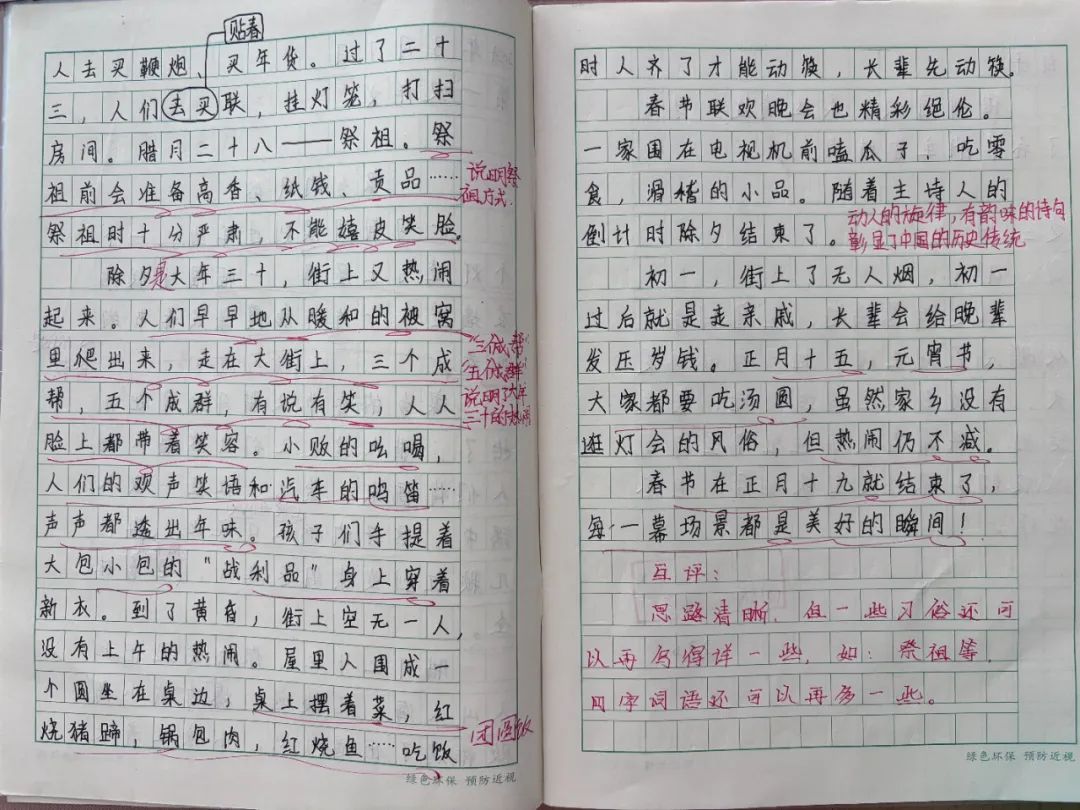 贴春
人去买鞭炮、买年货。过了二十
三，人们去买联，挂灯笼，打扫
房间。腊月二十八——祭祖。祭
祖前会准备高香、纸钱、贡品……
说明祭
祖方式.
祭祖时十分严肃，不能嬉皮笑脸。
除夕是大年三十，街上又热闹
起来。人们早早地从暖和的被窝
里爬出来，走在大街上，三个成
"三个成帮"
"五个成群"
帮，五个成群，有说有笑，人人
说明了大年
三十的热闹
脸上都带着笑容。小贩的吆喝，
人们的欢声笑语和汽车的鸣笛……
声声都透出年味。孩子们手提着
大包小包的"战利品"身上穿着
新衣。到了黄昏，街上空无一人，
没有上午的热闹。屋里人围成一
个圆坐在桌边，桌上摆着菜，红
烧猪蹄，锅包肉，红烧鱼……吃饭
团圆饭
绿色环保 预防近视
时人齐了才能动筷，长辈先动筷。
春节联欢晚会也精彩绝伦。
一家围在电视机前嗑瓜子，吃零
食，滑稽的小品。随着主诗人的
动人的旋律，有韵味的诗句
倒计时除夕结束了。
彰显了中国的历史传统
初一，街上了无人烟，初一
过后就是走亲戚，长辈会给晚辈
发压岁钱。正月十五，元宵节，
大家都要吃汤圆，虽然家乡没有
逛灯会的风俗，但热闹仍不减。
春节在正月十九就结束了，
每一幕场景都是美好的瞬间！
互评：
思路清晰，但一些习俗还可
以再写得详一些，如：祭祖等，
四字词语还可以再多一些。
绿色环保 预防近视